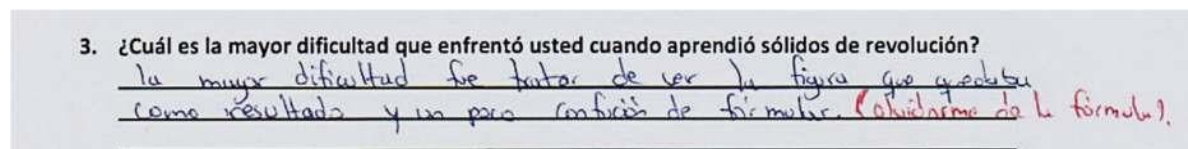 3. ¿Cuál es la mayor dificultad que enfrentó usted cuando aprendió sólidos de revolución?
la mayor dificultad fue tratar de ver la figura que quedaba
como resultado y un poco confución de formular. (olvidarme de la fórmula).